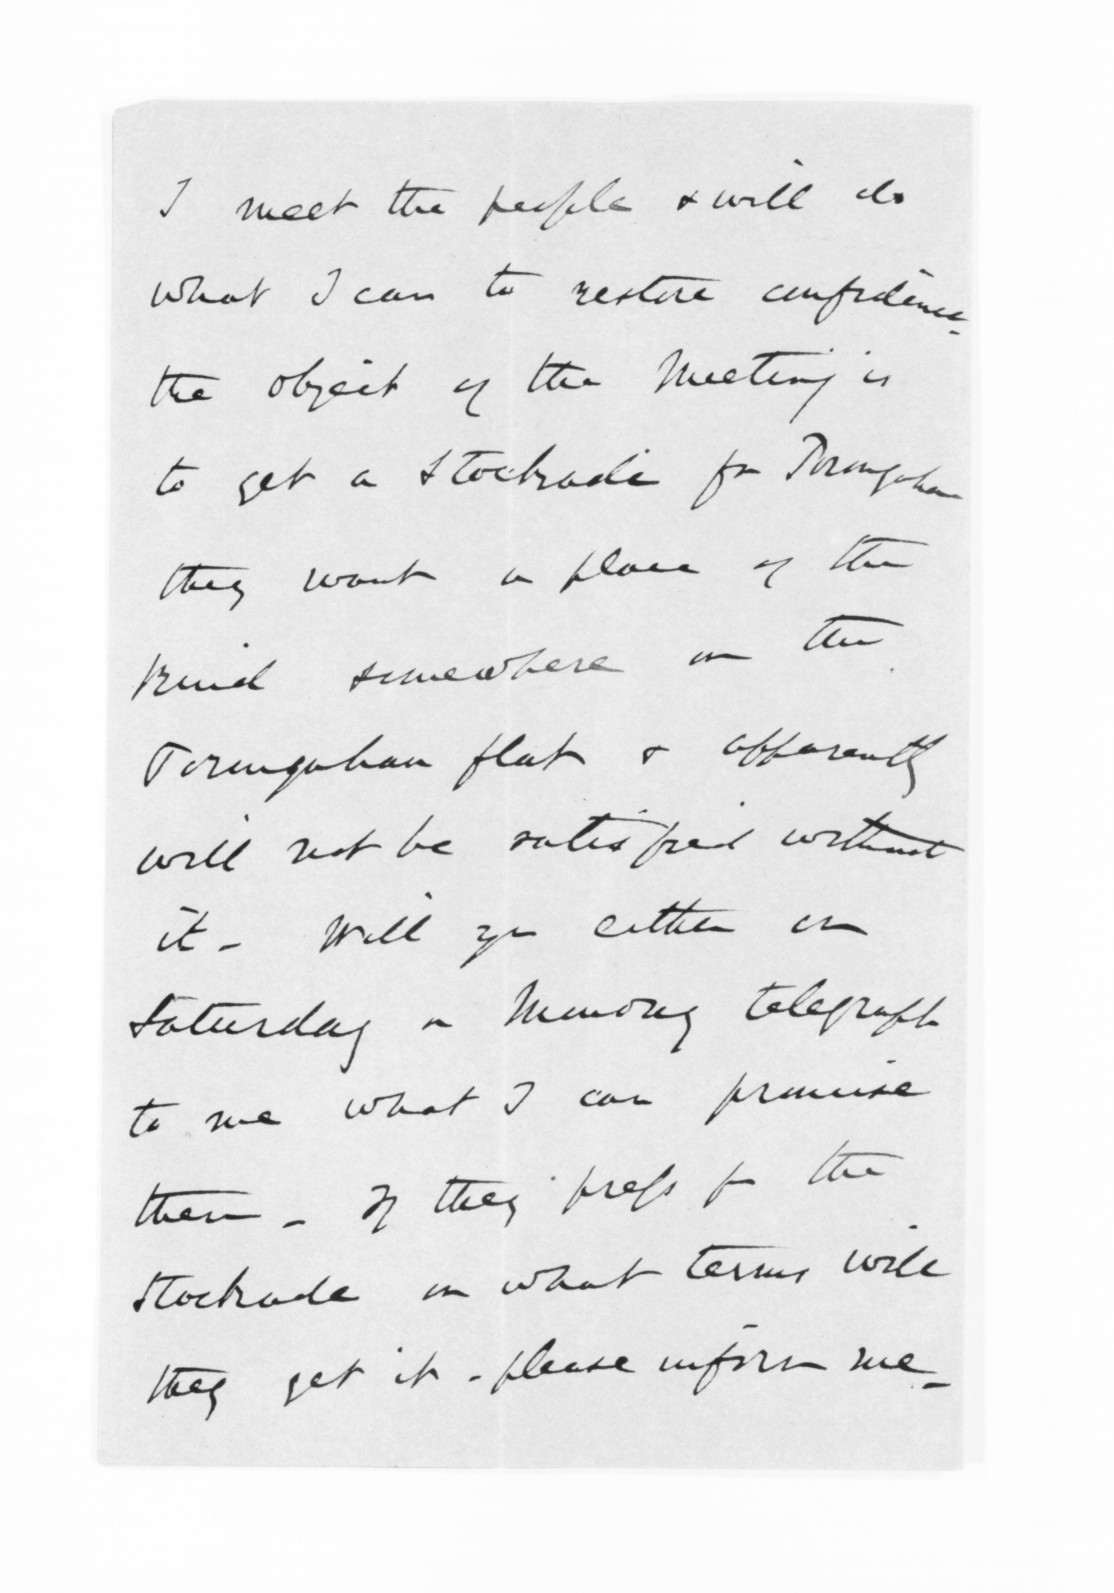 I meet the people & will do
what I can to restore confidence -
the object of the Meeting is
to get a Stockade for Porangahau
they want a place of the
kind somewhere on the
Porangahau flat & apparently
will not be satisfied without
it - Will you either on
Saturday or Monday telegraph
to me what I can promise
them - If they press for the
Stockade on what terms will
they get it - please inform me -